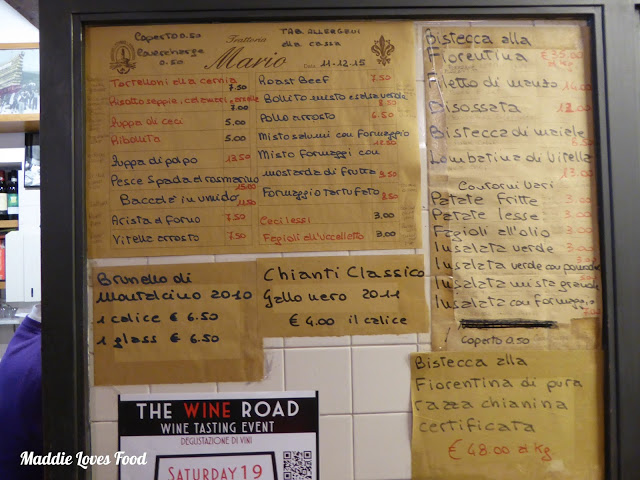 Coperto 0.50
Coverchorge
0.50
Trattoria
Mario
TAB ALLERGENI
alla cassa
Data 11-12-15
Tortelloni alla cernia
7.50
Risotto seppie, calamari e
7.00
Zuppa di ceci 5.00
Ribollita 5.00
Zuppa di polpo 13.50
Pesce Spada al rosmarino
15.00
Baccalà in umido
Arista al forno 7.50
Vitella arrosto 7.50
Roast Beef 7.50
Bollito misto e salsa verde
8.50
Pollo arrosto 6.50
Misto salumi con formaggio
12.50
Misto formaggi con
mostarda di frutta 8.50
Formaggio tartufato
8.50
Ceci lessi 3.00
Fagioli all'uccelletto 3.00
Bistecca alla
Fiorentina
al Kg
Filetto di manzo
Disossata 18.00
Bistecca di maiale
Lombatina di Vitella
13.00
Contorni Vari
Patate Fritte
Patate lesse
Fagioli all'olio
Insalata verde
Insalata verde con pomodoro
Insalata mista grande
Insalata con formaggio
Coperto 0.50
Brunello di
Montalcino 2010
1 calice € 6.50
1 glass € 6.50
Chianti Classico
Gallo nero 2011
€ 4.00 il calice
Bistecca alla
Fiorentina di pura
razza chianina
certificata
€ 48.00 al Kg.
THE WINE ROAD
WINE TASTING EVENT
DEGUSTAZIONE DI VINI
SATURDAY 19
Maddie Loves Food